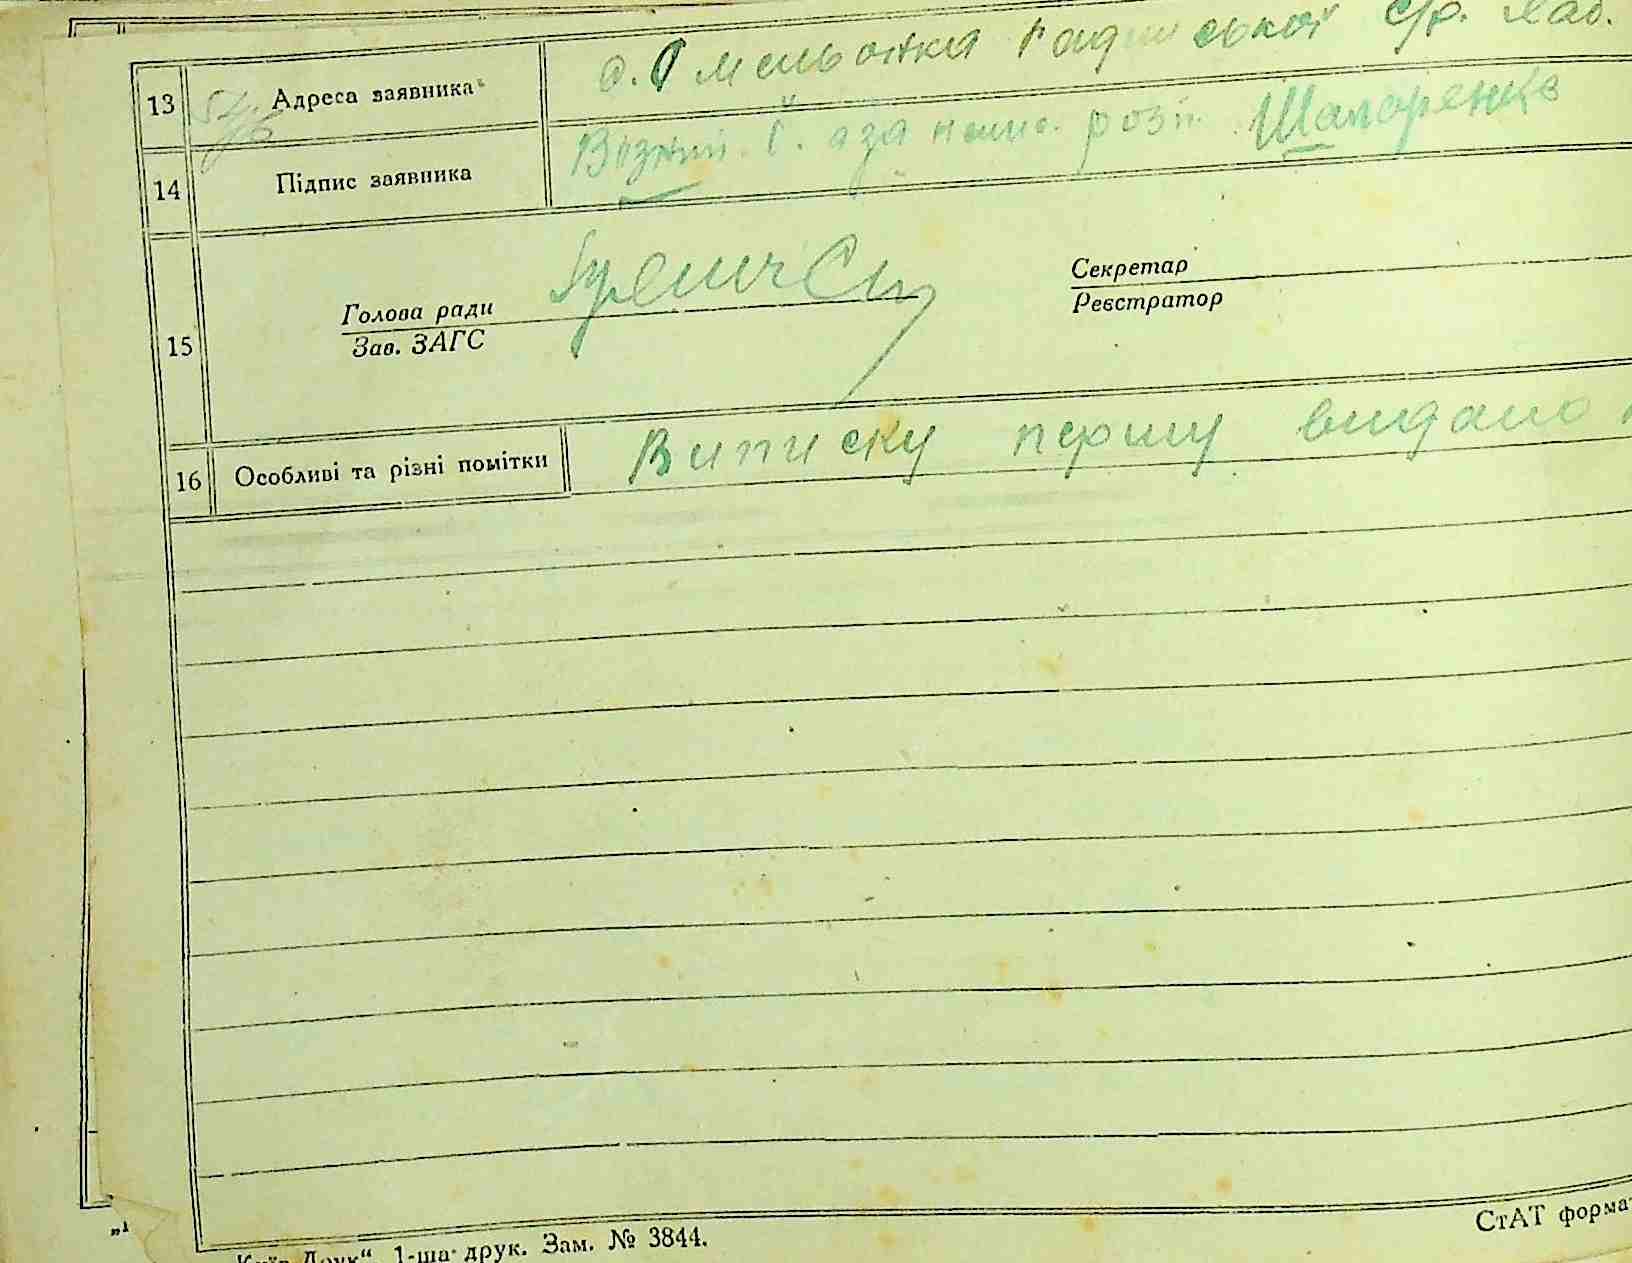 13 Адреса заявника с. Омельонка ської с/р.
14 Підпис заявника Візний розп. Шапоренко
Голова ради Секретар
15 Зав. ЗАГС Реєстратор
16 Особливі та різні помітки Виписку першу видано
Друк“ 1-ша друк. Зам. № 3844. СтАТ форма